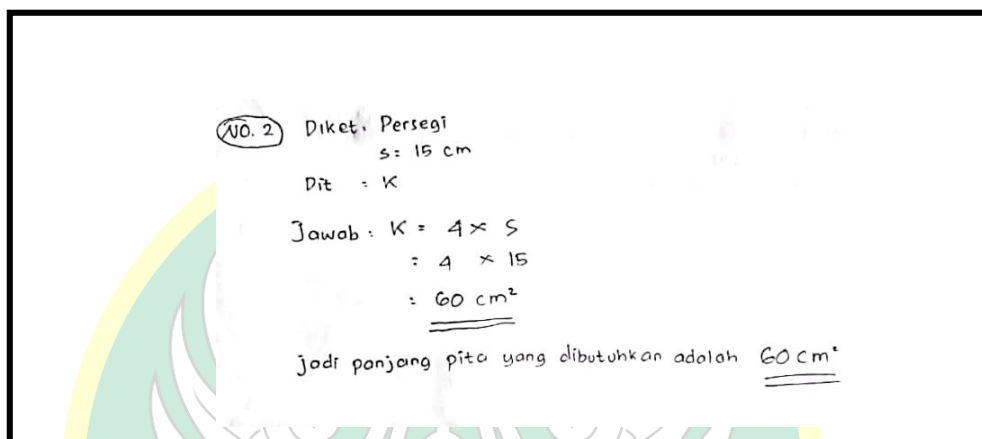 NO. 2 Diket. Persegi
s = 15 cm
Dit : K
Jawab : K = 4 × S
= 4 × 15
= 60 cm²
jadi panjang pita yang dibutuhkan adalah 60 cm²